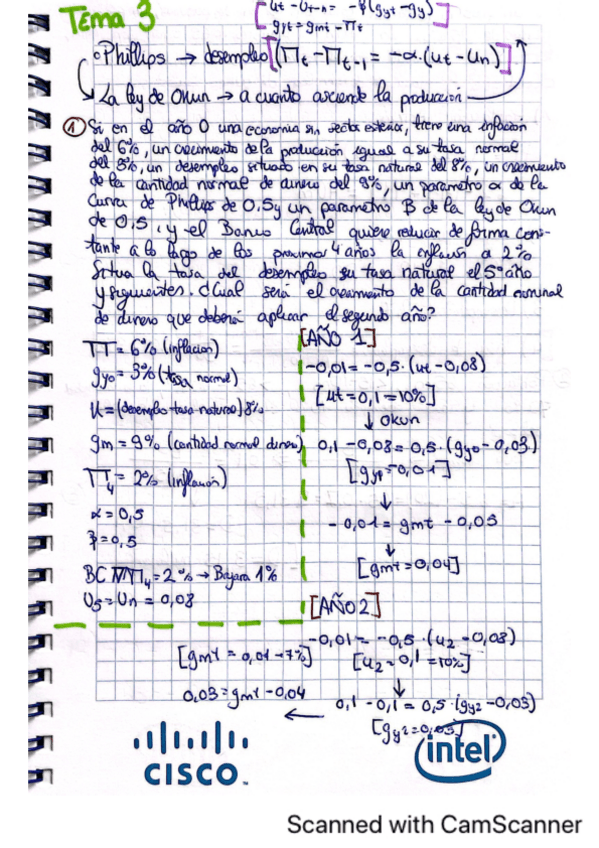 Tema 3
[ut - ut-n = -β(gyt - gy)
gyt = gmt - Πt]
Phillips → desempleo [(Πt - Πt-1 = -α·(ut - un)]
La ley de Okun → a cuanto asciende la producción
① Si en el año 0 una economía sin sector exterior, tiene una inflación
del 6%, un crecimiento de la producción igual a su tasa normal
del 3%, un desempleo situado en su tasa natural del 8%, un crecimiento
de la cantidad normal de dinero del 9%, un parametro α de la
Curva de Phillips de 0.5 y un parametro B de la ley de Okun
de 0.5, y el Banco Central quiere reducir de forma cons-
tante a lo largo de los proximos 4 años la inflación a 2%
Situa la tasa del desempleo su tasa natural el 5º año
y siguientes. ¿Cual será el crecimiento de la cantidad nominal
de dinero que deberá aplicar el segundo año?
Π = 6% (inflación)
gyo = 3% (tasa normal)
U = (desempleo tasa natural) 8%
gm = 9% (cantidad normal dinero)
Π4 = 2% (inflación)
α = 0,5
β = 0,5
BC Π4 = 2% → Bajara 1%
U5 = Un = 0,08
[AÑO 1]
-0,01 = -0,5·(ut - 0,08)
[ut = 0,1 = 10%]
↓ Okun
0,1 - 0,08 = 0,5·(gyo - 0,03)
[gyt = 0,01]
↓
-0,01 = gmt - 0,05
↓
[gmt = 0,04]
[AÑO 2]
-0,01 = -0,5·(u2 - 0,08)
[u2 = 0,1 = 10%]
↓
0,1 - 0,1 = 0,5·(gy2 - 0,03)
[gy2 = 0,03]
←
0,03 = gmt - 0,04
[gmt = 0,07 → 7%]
CISCO
intel
Scanned with CamScanner